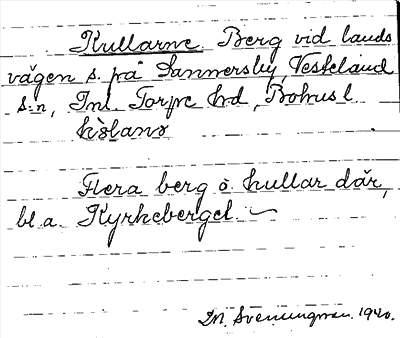 Kullarne Berg vid lands
vägen s. på Sannersby, Veskeland
s:n, Inl. Torpe hrd, Bohusl
kòlanɤ
Flera berg ò kullar där,
bl.a. Kyrkeberget
M. Svenungsson. 1940.